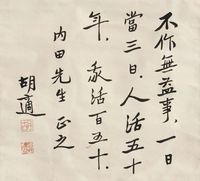 不作無益事，一日
當三日，人活五十
年，我活百五十，
内田先生正之
胡適